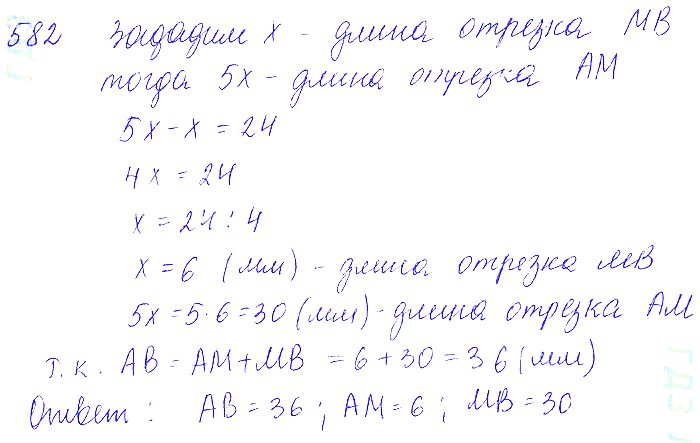 582 Зададим x - длина отрезка MB
тогда 5x - длина отрезка AM
5x - x = 24
4x = 24
x = 24 : 4
x = 6 (мм) - длина отрезка MB
5x = 5 · 6 = 30 (мм) - длина отрезка AM
т.к. AB = AM + MB = 6 + 30 = 36 (мм)
Ответ : AB = 36 ; AM = 6 ; MB = 30